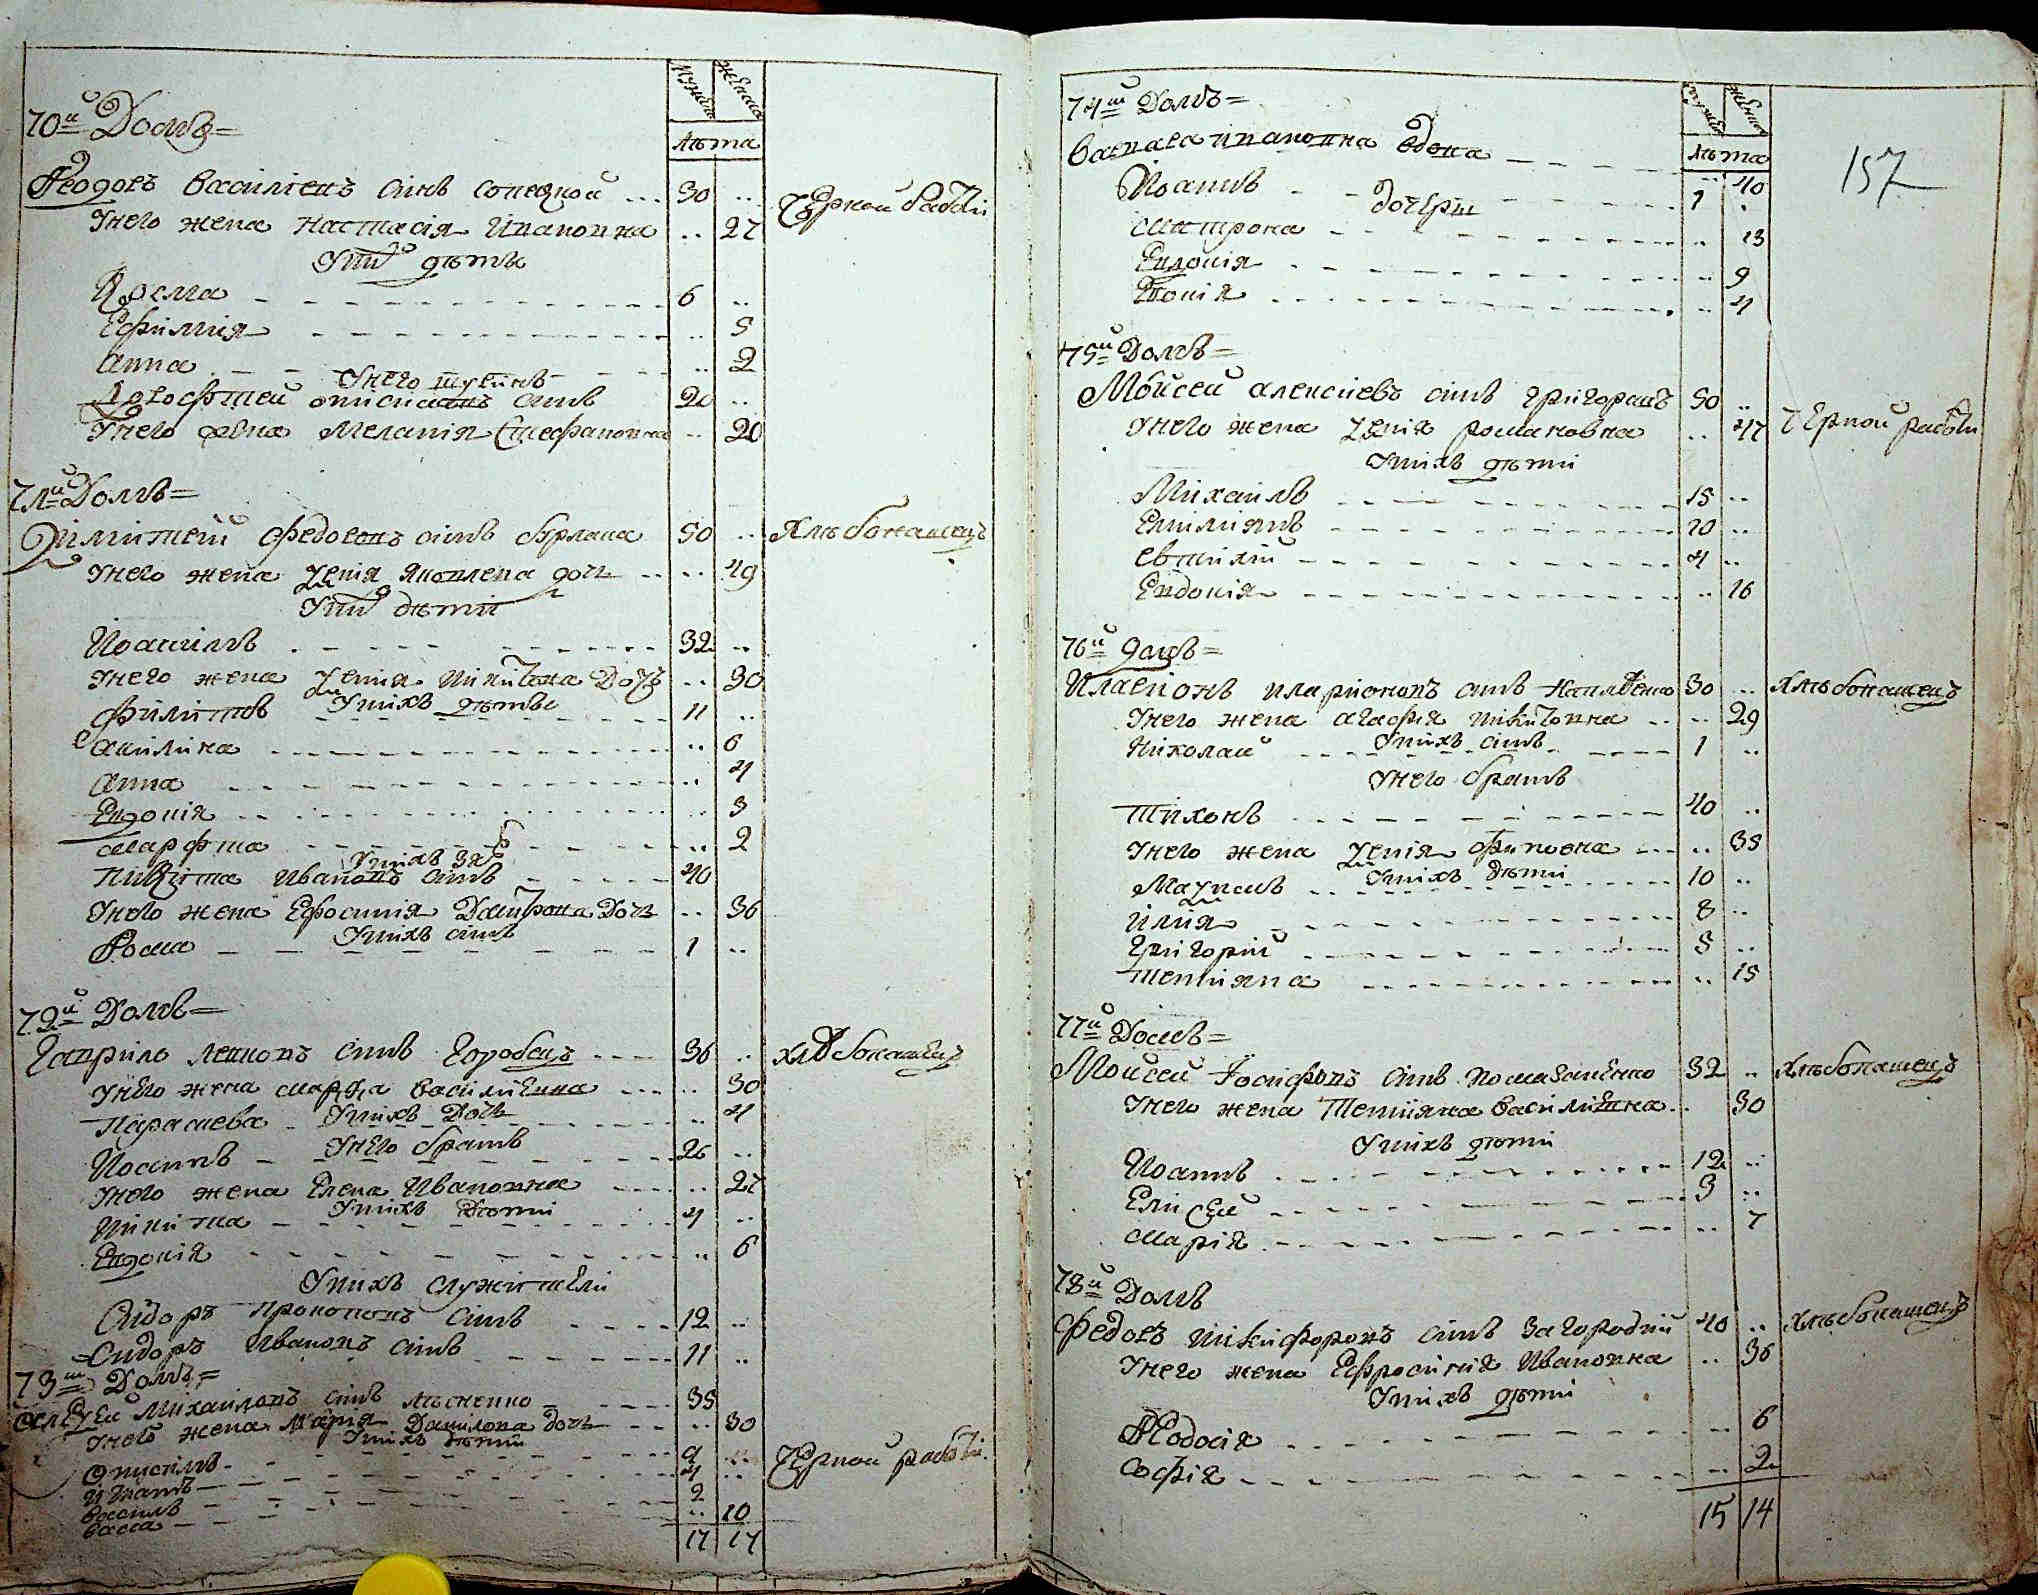 мужеска женска
лѣта
70й Домъ=
Феодоръ Василіевъ синъ 30 .. Чорной работи
Унего жена Настасія Ивановна .. 27
Унихъ дѣти
Козма 6 ..
Ефимія .. 5
Анна .. 2
Унего шуринъ
Дорофтей Онисимовъ синъ 20 ..
Унего жена Меланія Стефановна .. 20
71й Домъ=
Димитрей Федоровъ синъ Бурлака 50 .. Хлѣбопашецъ
Унего жена Ксенія Яковлева дочь .. 49
Унихъ дѣти
Иоакимъ 32 ..
Унего жена Ксенія Никитова Дочь .. 30
Унихъ дѣти
Филипъ 11 ..
Акилина .. 6
Анна .. 4
Евдокія .. 3
Марфта .. 2
Унихъ зять
Никита Ивановъ синъ 40
Унего жена Ефросинія Дмитрова Дочь .. 36
Унихъ синъ
Фома 1 ..
72й Домъ=
Гаврило Леоновъ синъ Горобецъ 36 .. Хлѣбопашецъ
Унего жена Марфа Василиевна .. 30
Унихъ Дочь
Параскева .. 4
Унего братъ
Иосипъ 26 ..
Унего жена Елена Ивановна .. 27
Унихъ Дѣти
Никита 4 ..
Евдокія .. 6
Унихъ служители
Сидоръ Прокоповъ синъ 12 ..
Сидоръ Ивановъ синъ 11 ..
73й Домъ=
Алексей Михайловъ синъ Лисненко 35
Унего жена Марія Данилова дочь .. 30
Унихъ дѣти
Онисимъ 9 .. Чорной работи
Игнатъ 4 ..
Василь 2
Васса .. 10
17 17
мужеска женска
157
лѣта
74й Домъ=
Васса Ивановна вдова .. 40
Иоанъ 1 ..
дочери
Матрона .. 13
Евдокія .. 9
.. 4
75й Домъ=
Мойсей Алексіевъ синъ Григоращъ 50 ..
Унего жена Ксенія Романовна .. 47 Чорной работи
Унихъ дѣти
Михаилъ 15 ..
Емилиянъ 10 ..
Евтихій 4 ..
Евдокія .. 16
76й Домъ=
Иларіонъ Иларионовъ синъ 30 .. Хлѣбопашецъ
Унего жена Агафія Никитовна .. 29
Унихъ синъ
Николай 1 ..
Унего братъ
Тихонъ 40 ..
Унего жена Ксенія Филиповна .. 35
Унихъ дѣти
Максимъ 10 ..
Илія 8 ..
Григорій 5 ..
Тетияна .. 15
77й Домъ=
Мойсей Иосифовъ синъ Помазаненко 32 .. Хлѣбопашецъ
Унего жена Тетияна Василиевна .. 30
Унихъ дѣти
Иоанъ 12 ..
Елисей 3 ..
Марія .. 7
78й Домъ
Федоръ Никифоровъ синъ Загородній 40 .. Хлѣбопашецъ
Унего жена Ефросинія Ивановна .. 36
Унихъ дѣти
Феодосія .. 6
Софія .. 2
15 14